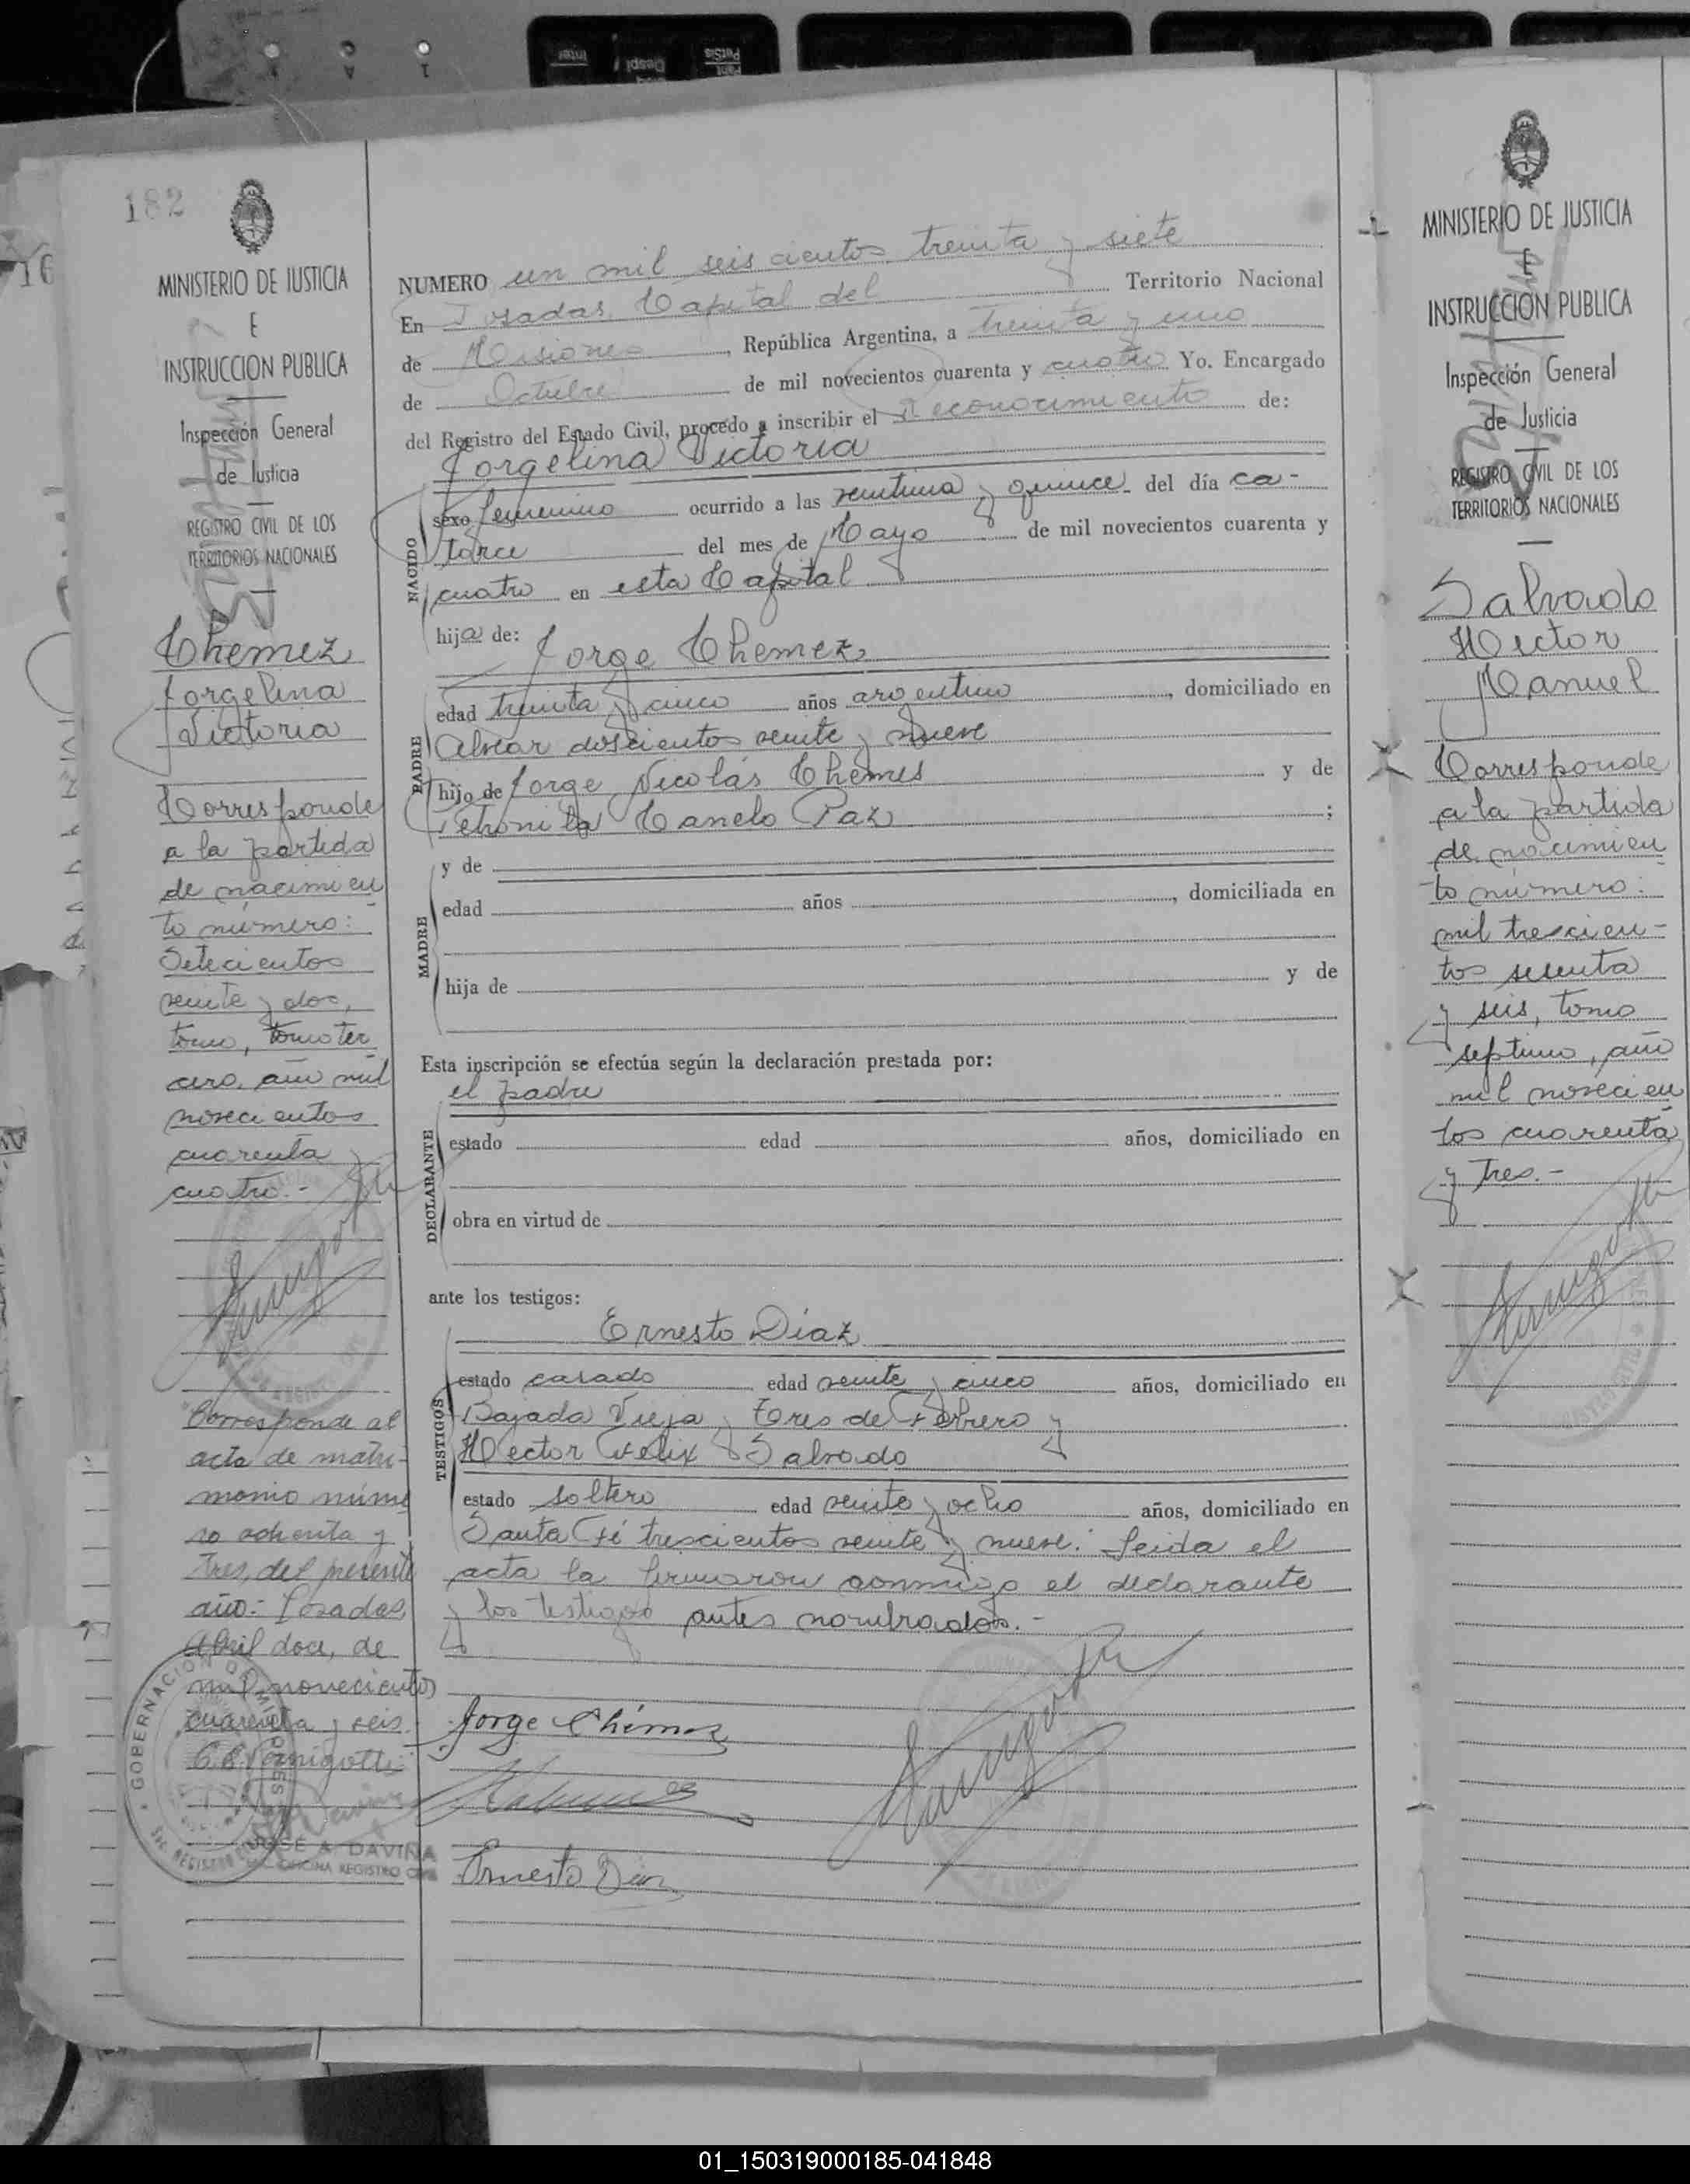 182
MINISTERIO DE JUSTICIA
E
INSTRUCCION PUBLICA
Inspección General
de Justicia
REGISTRO CIVIL DE LOS
TERRITORIOS NACIONALES
Chemez
Jorgelina
Victoria
Corresponde
a la partida
de nacimien
to número:
Setecientos
veinte y dos,
tomo, tomo ter
cero, año mil
novecientos
cuarenta y
cuatro.-
Corresponde al
acta de matri-
monio núme
ro ochenta y
tres, del presente
año.- Posadas,
Abril doce, de
mil novecientos
cuarenta y seis.
GOBERNACION DE MISIONES
JOSE A. DAVIÑA
OFICINA REGISTRO CIVIL
NUMERO un mil seis cientos treinta y siete
En Posadas, Capital del Territorio Nacional
de Misiones, República Argentina, a treinta y uno
de Octubre de mil novecientos cuarenta y cuatro Yo. Encargado
del Registro del Estado Civil, procedo a inscribir el Reconocimiento de:
Jorgelina Victoria
NACIDO
sexo femenino ocurrido a las veintiuna y quince del día ca-
torce del mes de Mayo de mil novecientos cuarenta y
cuatro en esta Capital
hija de: Jorge Chemez
PADRE
edad treinta y cinco años argentino, domiciliado en
Alvear doscientos veinte y nueve
hijo de Jorge Nicolás Chemes y de
Petronila Canelo Paz;
MADRE
y de
edad años, domiciliada en
hija de y de
Esta inscripción se efectúa según la declaración prestada por:
el padre
DECLARANTE
estado edad años, domiciliado en
obra en virtud de
ante los testigos:
Ernesto Diaz
TESTIGOS
estado casado edad veinte y cinco años, domiciliado en
Bajada Vieja y Tres de Febrero y
Hector Felix Salvado
estado soltero edad veinte y ocho años, domiciliado en
Santa Fé trescientos veinte y nueve. Leida el
acta la firmaron conmigo el declarante
y los testigos antes nombrados.-
Jorge Chémez
Ernesto Diaz
MINISTERIO DE JUSTICIA
E
INSTRUCCION PUBLICA
Inspección General
de Justicia
REGISTRO CIVIL DE LOS
TERRITORIOS NACIONALES
Salvado
Hector
Manuel
Corresponde
a la partida
de nacimien
to número:
mil trescien-
tos sesenta
y seis, tomo
septimo, año
mil novecien
tos cuarenta
y tres.-
01_150319000185-041848